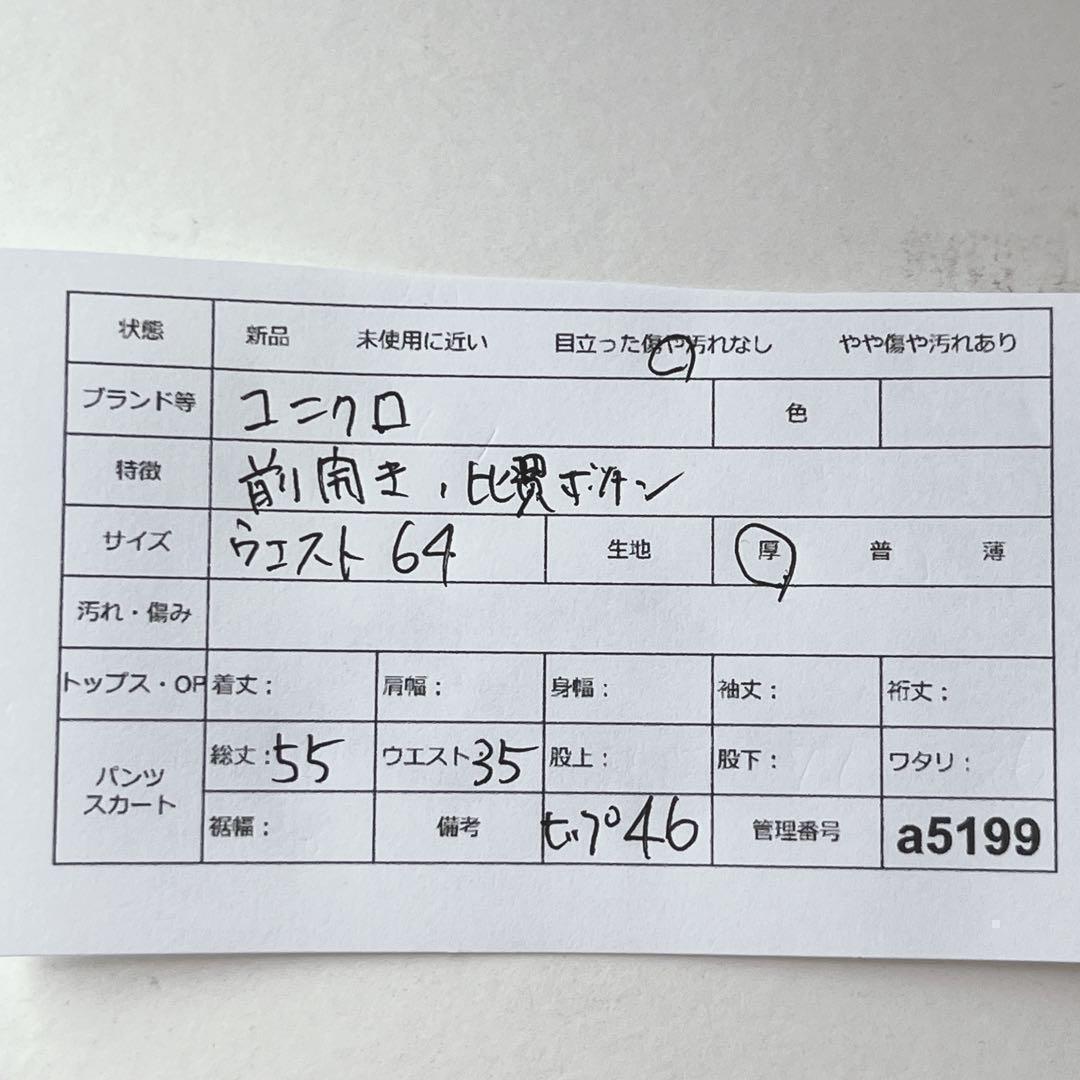 状態 新品 未使用に近い 目立った傷や汚れなし やや傷や汚れあり
ブランド等 ユニクロ 色
特徴 前開き、比翼ボタン
サイズ ウエスト 64 生地 厚 普 薄
汚れ・傷み
トップス・OP 着丈: 肩幅: 身幅: 袖丈: 裄丈:
パンツ スカート
総丈:55 ウエスト:35 股上: 股下: ワタリ:
裾幅: 備考 ヒップ46 管理番号 a5199